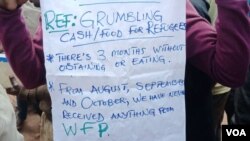 REF: GRUMBLING
CASH/FOOD FOR REFUGEES
* THERE'S 3 MONTHS WITHOUT
OBTAINING OR EATING.
* FROM AUGUST, SEPTEMBER
AND OCTOBER, WE HAVE NEVER
RECEIVED ANYTHING FROM
WFP.
VOA